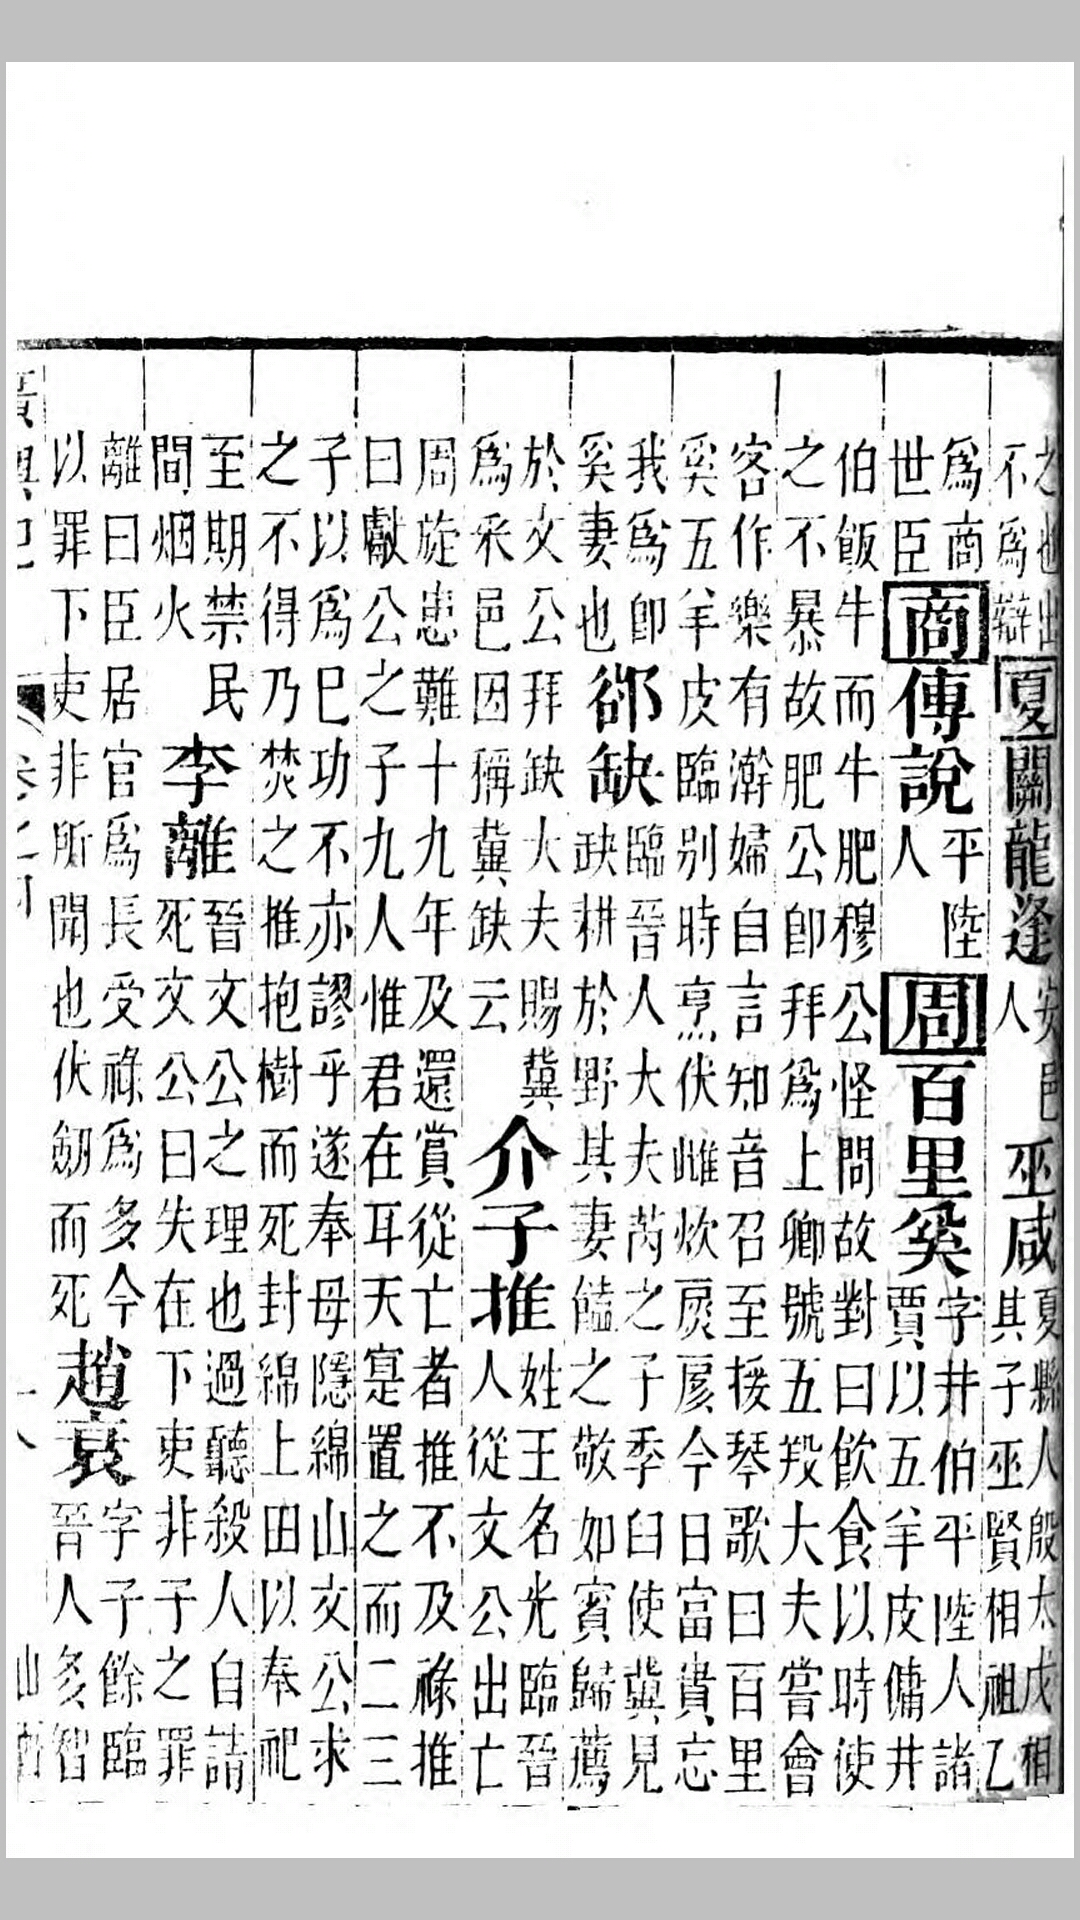 之也出
不爲辯
夏關龍逢
安邑
人
巫咸
夏縣人殷太戊相
其子巫賢相祖乙
爲商
世臣
商傅說
平陸
人
周百里奚
字井伯平陸人諸
賈以五羊皮傭井
伯飯牛而牛肥穆公怪問故對曰飲食以時使
之不暴故肥公卽拜爲上卿號五羖大夫嘗會
客作樂有澣婦自言知音召至援琴歌曰百里
奚五羊皮臨別時烹伏雌炊扊扅今日富貴忘
我爲卽
奚妻也
郤缺
臨晉人大夫芮之子季臼使冀見
缺耕於野其妻饁之敬如賓歸薦
於文公拜缺大夫賜冀
爲采邑因稱冀缺云
介子推
姓王名光臨晉
人從文公出亡
周旋患難十九年及還賞從亡者推不及祿推
曰獻公之子九人惟君在耳天寔置之而二三
子以爲巳功不亦謬乎遂奉母隱綿山文公求
之不得乃焚之推抱樹而死封綿上田以奉祀
至期禁民
間烟火
李離
晉文公之理也過聽殺人自請
死文公曰失在下吏非子之罪
離曰臣居官爲長受祿爲多今
以罪下吏非所聞也伏劒而死
趙衰
字子餘臨
晉人多智